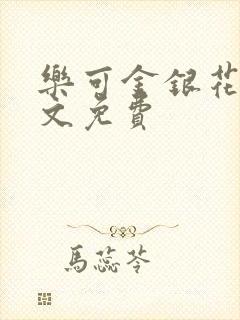 樂可金銀花
文免費
馬蕊苓